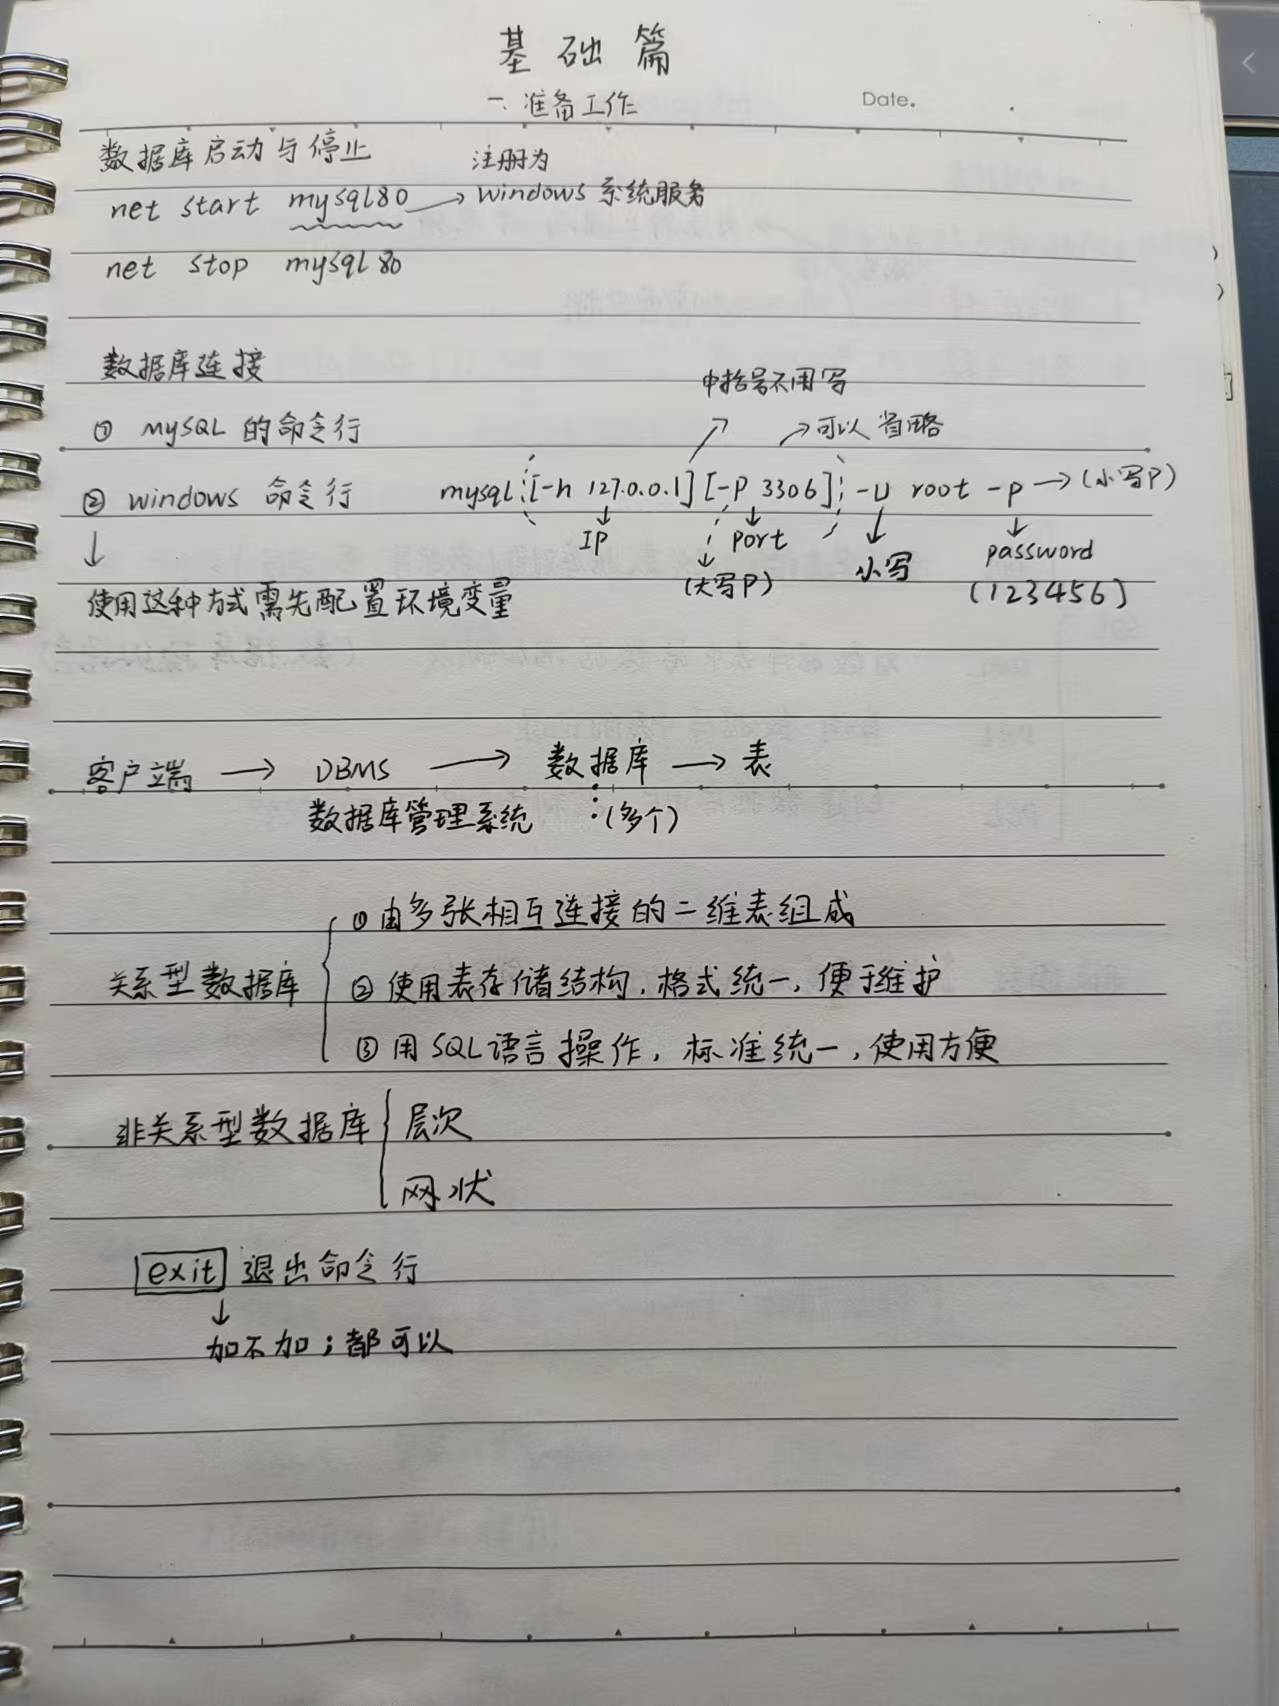 基础篇
一、准备工作
Date.
数据库启动与停止
注册为
net start mysql80 → windows 系统服务
net stop mysql80
数据库连接
中括号不用写
① MySQL 的命令行
→ 可以省略
② windows 命令行 mysql [-h 127.0.0.1] [-P 3306] -u root -p → (小写P)
↓ IP ↓ port ↓ (大写P) ↓ 小写 ↓ password
使用这种方式需先配置环境变量 (123456)
客户端 → DBMS → 数据库 → 表
数据库管理系统 ⋮ (多个)
① 由多张相互连接的二维表组成
关系型数据库 { ② 使用表存储结构,格式统一,便于维护
③ 用SQL语言操作,标准统一,使用方便
非关系型数据库 { 层次
网状
exit 退出命令行
↓
加不加;都可以